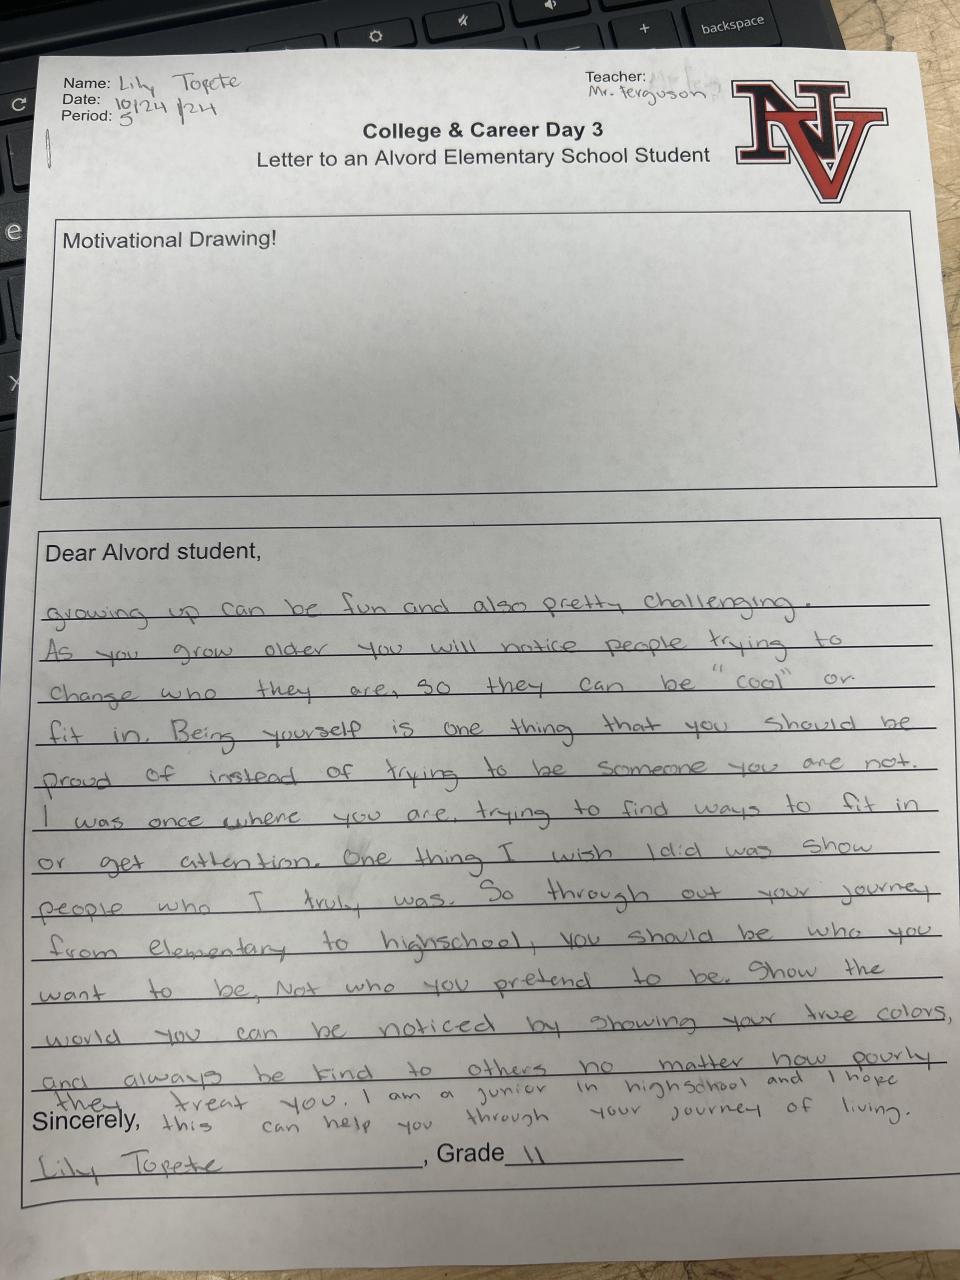 backspace
+
e
Name: Lily Topete
Date: 10/24/24
Period: 5
Teacher:
Mr. Ferguson
NV
College & Career Day 3
Letter to an Alvord Elementary School Student
Motivational Drawing!
Dear Alvord student,
growing up can be fun and also pretty challenging.
As you grow older you will notice people trying to
change who they are, so they can be "cool" or
fit in. Being yourself is one thing that you should be
proud of instead of trying to be someone you are not.
I was once where you are, trying to find ways to fit in
or get attention. One thing I wish I did was show
people who I truly was. So through out your journey
from elementary to highschool, you should be who you
want to be, Not who you pretend to be. Show the
world you can be noticed by showing your true colors,
and always be kind to others no matter how pourly
they treat you. I am a junior in highschool and I hope
this can help you through your journey of living.
Sincerely,
Lily Topete, Grade 11